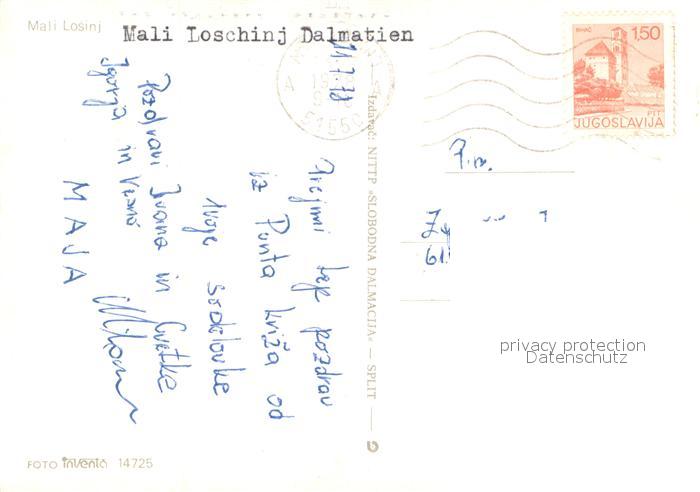 Mali Lošinj
Mali Loschinj Dalmatien
11.7.78
Prejmi lep pozdrav
iz Punta Križa od
tvoje sodelavke
MAJA
Pozdravi Ivana in Cvetke
in
Izdavač: NITTP »SLOBODNA DALMACIJA« — SPLIT —
BIHAĆ
1,50
PTT
JUGOSLAVIJA
61
privacy protection
Datenschutz
FOTO inventa 14725